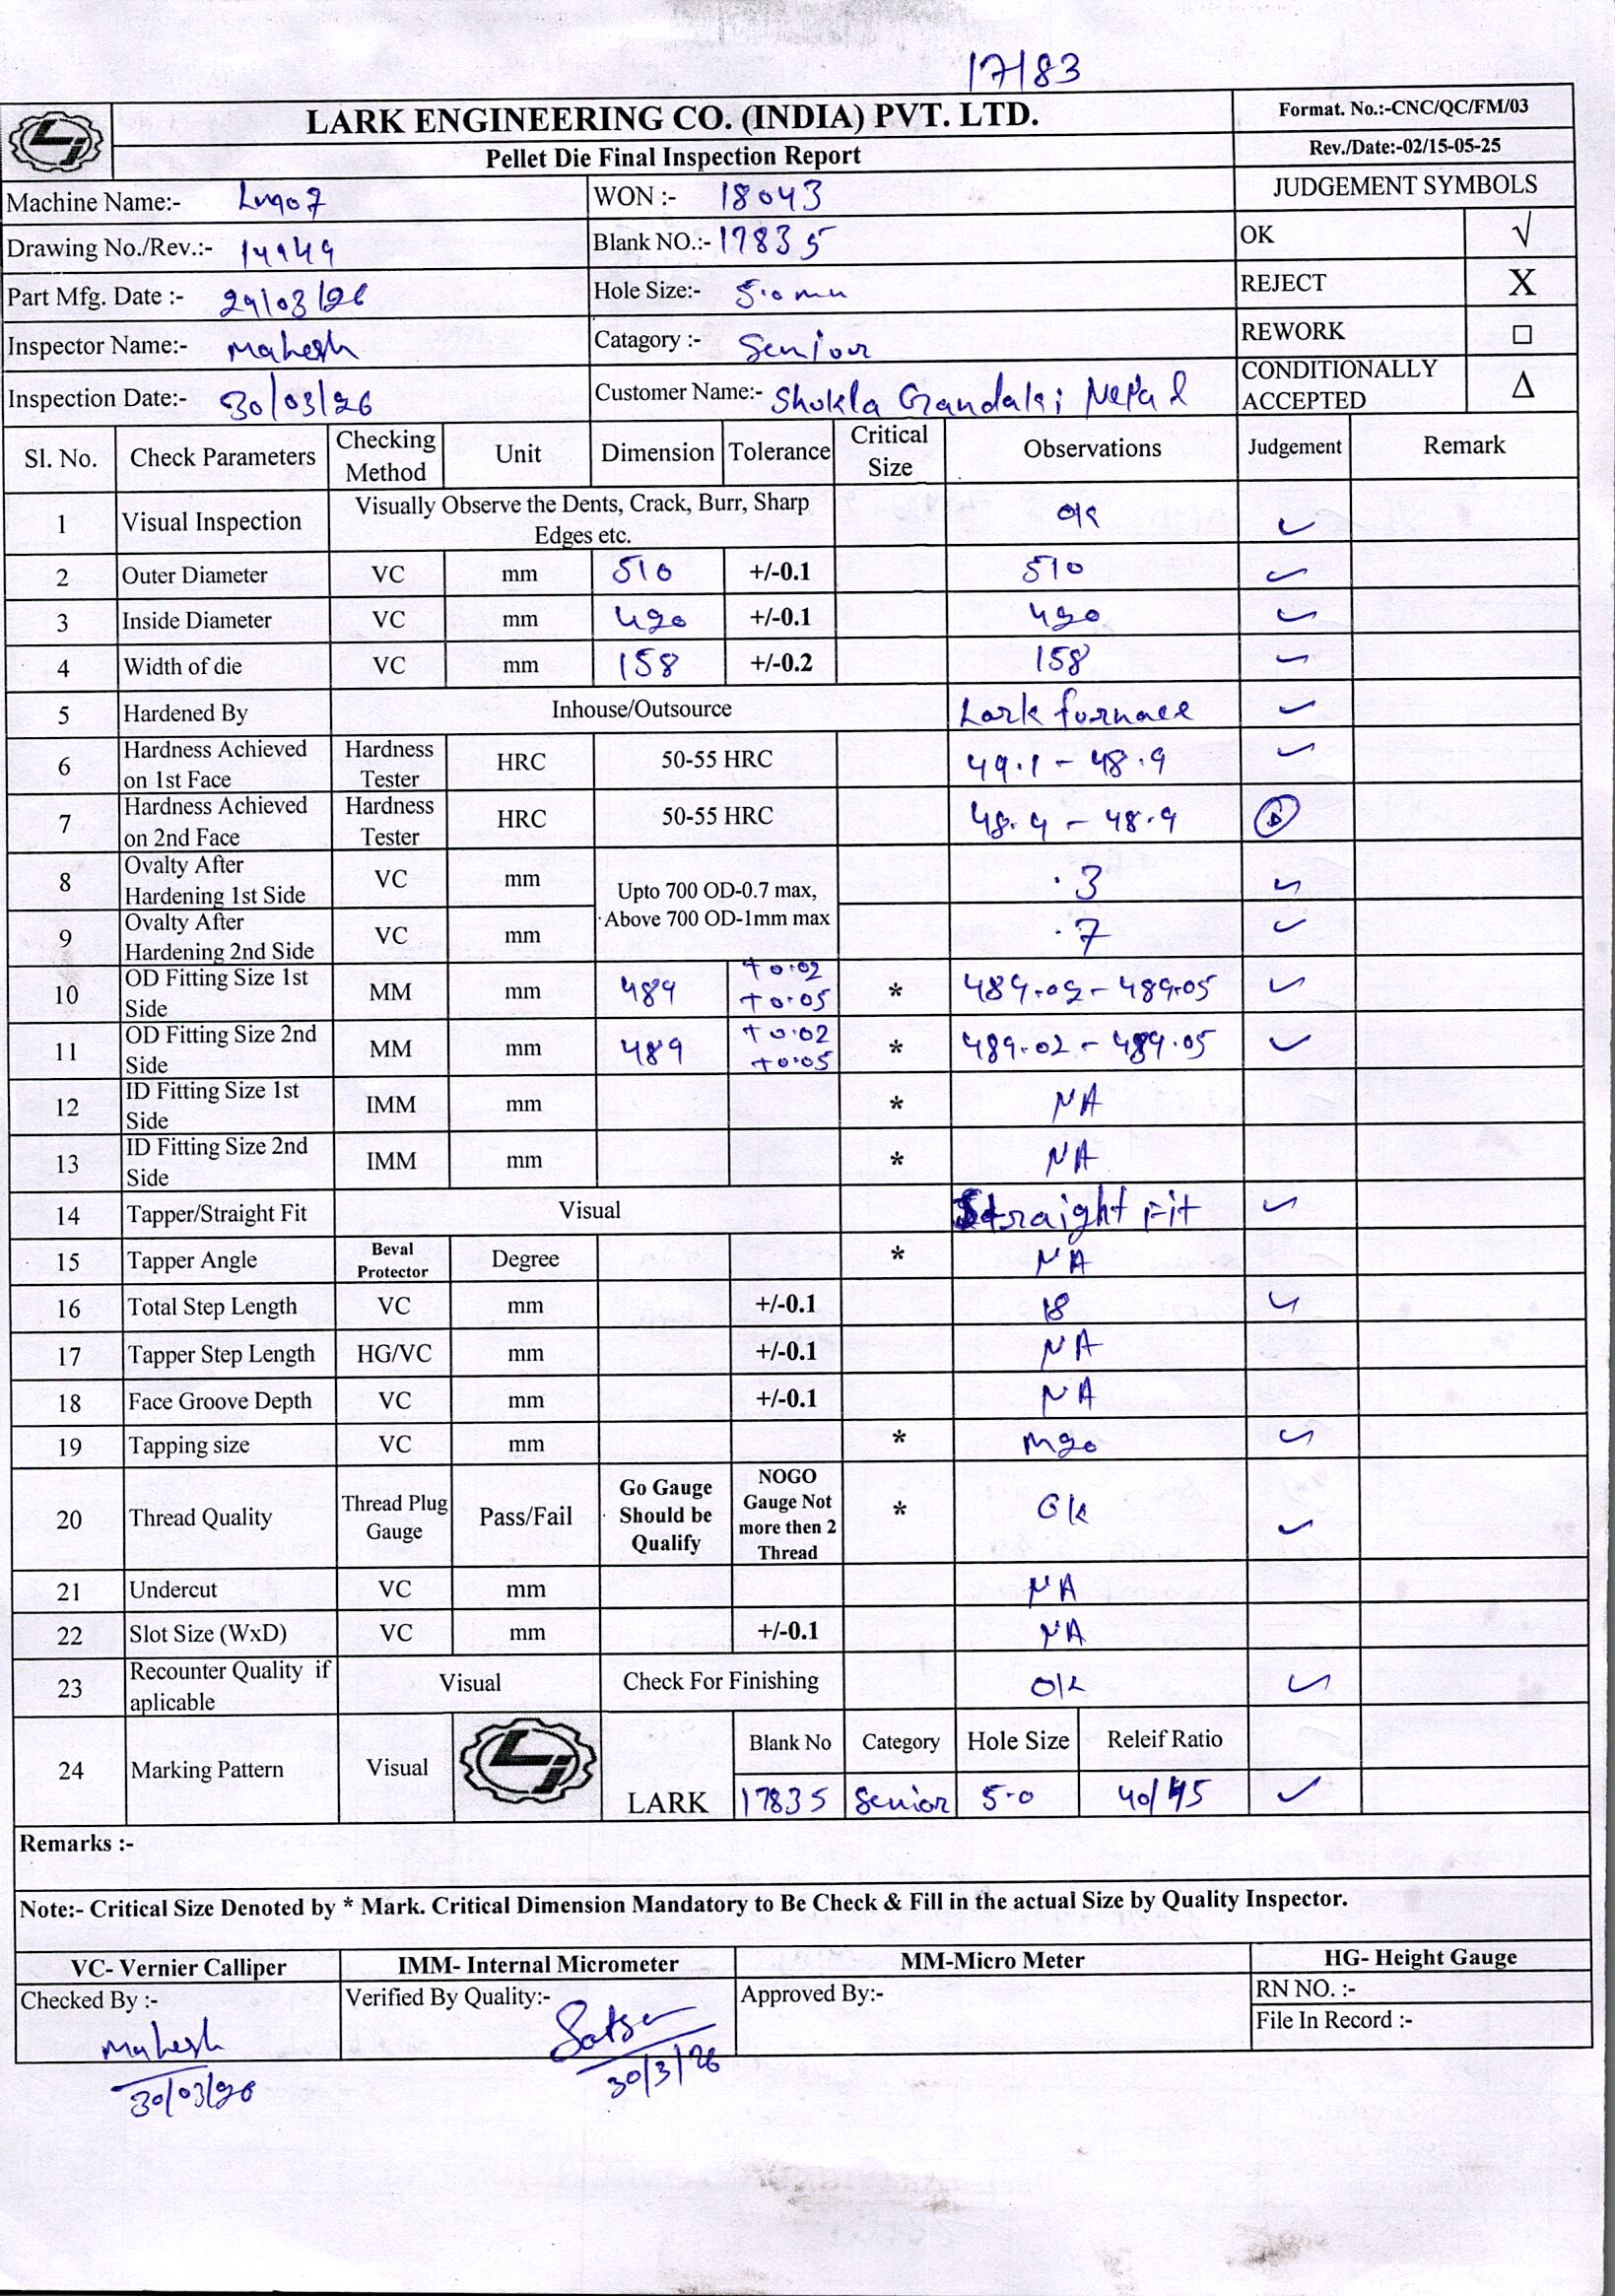 17183
LARK ENGINEERING CO. (INDIA) PVT. LTD.
Format. No.:-CNC/QC/FM/03
Pellet Die Final Inspection Report
Rev./Date:-02/15-05-25
Machine Name:-
WON :- 18043
JUDGEMENT SYMBOLS
Drawing No./Rev.:- 14949
Blank NO.:- 17835
OK √
Part Mfg. Date :- 29/03/26
Hole Size:- 5.0 mm
REJECT X
Inspector Name:- Mahesh
Catagory :- Senior
REWORK □
Inspection Date:- 30/03/26
Customer Name:- Shukla Gandaki Nepal
CONDITIONALLY ACCEPTED Δ
Sl. No. Check Parameters Checking Method Unit Dimension Tolerance Critical Size Observations Judgement Remark
1 Visual Inspection Visually Observe the Dents, Crack, Burr, Sharp Edges etc. ok ✓
2 Outer Diameter VC mm 510 +/-0.1 510 ✓
3 Inside Diameter VC mm 420 +/-0.1 420 ✓
4 Width of die VC mm 158 +/-0.2 158 ✓
5 Hardened By Inhouse/Outsource Lark furnace ✓
6 Hardness Achieved on 1st Face Hardness Tester HRC 50-55 HRC 49.1 - 48.9 ✓
7 Hardness Achieved on 2nd Face Hardness Tester HRC 50-55 HRC 48.9 - 48.9
8 Ovalty After Hardening 1st Side VC mm Upto 700 OD-0.7 max, Above 700 OD-1mm max .3 ✓
9 Ovalty After Hardening 2nd Side VC mm .7 ✓
10 OD Fitting Size 1st Side MM mm 489 +0.02 +0.05 * 489.02 - 489.05 ✓
11 OD Fitting Size 2nd Side MM mm 489 +0.02 +0.05 * 489.02 - 489.05 ✓
12 ID Fitting Size 1st Side IMM mm * NA
13 ID Fitting Size 2nd Side IMM mm * NA
14 Tapper/Straight Fit Visual Straight Fit ✓
15 Tapper Angle Beval Protector Degree * NA
16 Total Step Length VC mm +/-0.1 18 ✓
17 Tapper Step Length HG/VC mm +/-0.1 NA
18 Face Groove Depth VC mm +/-0.1 NA
19 Tapping size VC mm * M20 ✓
20 Thread Quality Thread Plug Gauge Pass/Fail Go Gauge Should be Qualify NOGO Gauge Not more then 2 Thread * Ok ✓
21 Undercut VC mm NA
22 Slot Size (WxD) VC mm +/-0.1 NA
23 Recounter Quality if aplicable Visual Check For Finishing Ok ✓
24 Marking Pattern Visual LARK Blank No Category Hole Size Releif Ratio
17835 Senior 5.0 40/45 ✓
Remarks :-
Note:- Critical Size Denoted by * Mark. Critical Dimension Mandatory to Be Check & Fill in the actual Size by Quality Inspector.
VC- Vernier Calliper IMM- Internal Micrometer MM-Micro Meter HG- Height Gauge
Checked By :- Verified By Quality:- Approved By:- RN NO. :-
File In Record :-
Mahesh
30/03/26 30/3/26